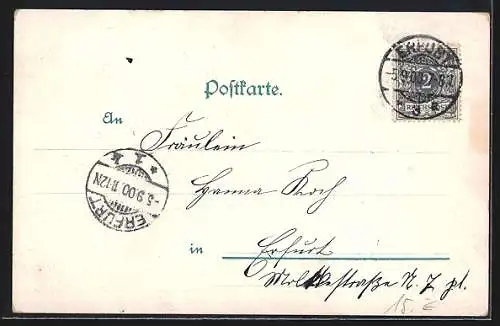 ERFURT
-5.9.00
2
Postkarte.
An
Fräulein
Hanna Koch
* 1 k
-5.9.00.11-12N
ERFURT
in Erfurt
Moltkestraße N. 7 pt.
15.